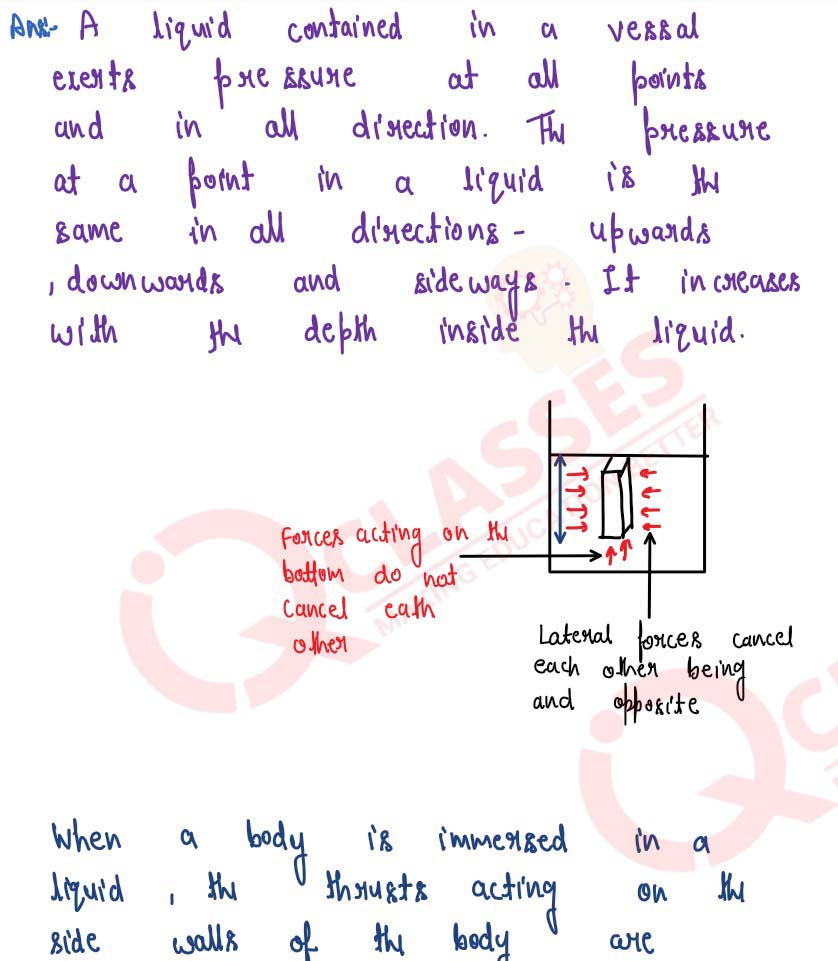 Ans:- A liquid contained in a vessal
exerts pressure at all points
and in all direction. The pressure
at a point in a liquid is the
same in all directions - upwards
, downwards and sideways. It increases
with the depth inside the liquid.
Forces acting on the
bottom do not
cancel eath
other
Lateral forces cancel
each other being
and opposite
When a body is immersed in a
liquid, the thrusts acting on the
side walls of the body are
IQ CLASSES
MAKING EDUCATION BETTER
IQ C